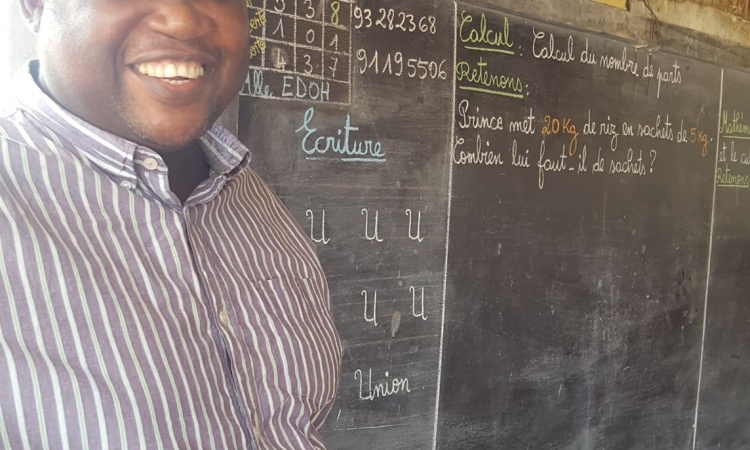 3 3 8
1 0 1
4 3 7
Mlle EDOH
93282368
91195506
Ecriture
U U U
U U
Union
Calcul : Calcul du nombre de parts
Retenons :
Prince met 20 Kg de riz en sachets de 5 Kg.
Combien lui faut-il de sachets ?
et le
Retenons